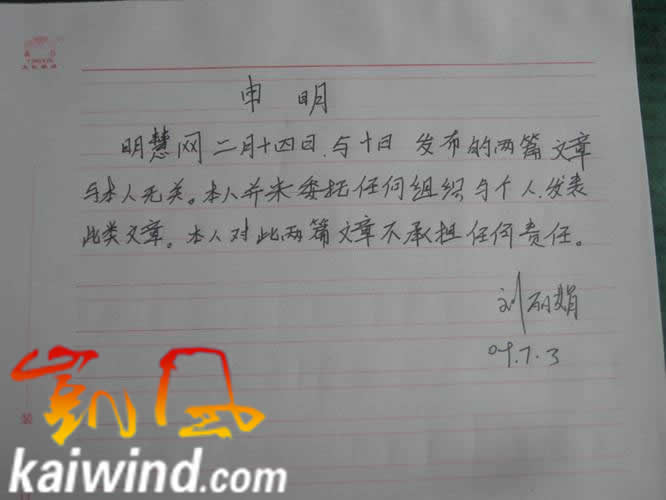 申 明
明慧网二月十四日.与十日 发布的两篇文章
与本人无关。本人并未委托任何组织与个人.发表
此类文章。本人对此两篇文章不承担任何责任。
刘丽娟
09.7.3
凯风
kaiwind.com